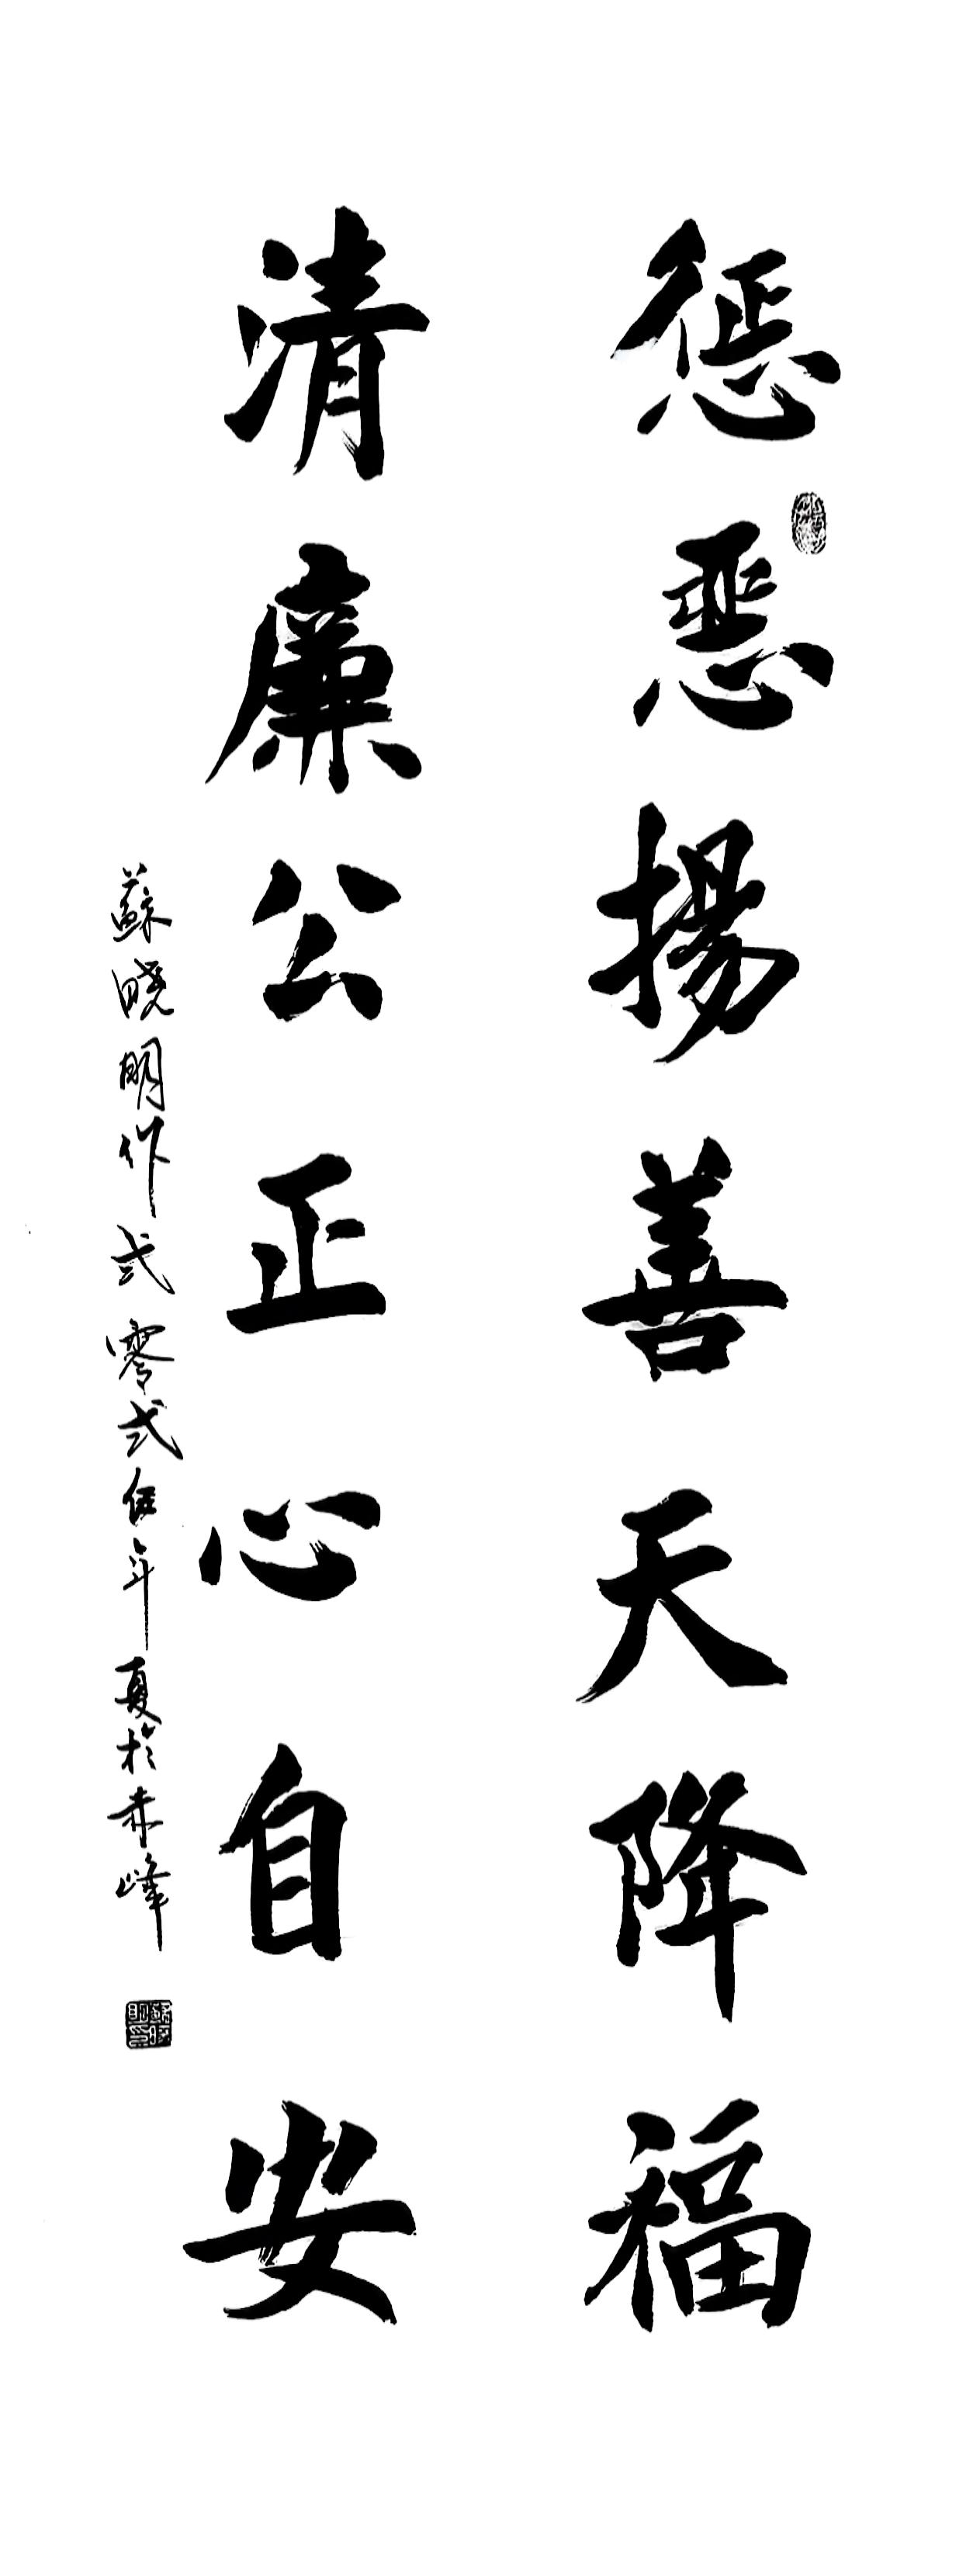 惩恶揚善天降福
清廉公正心自安
蘇曉明作弍零弍伍年夏於赤峰